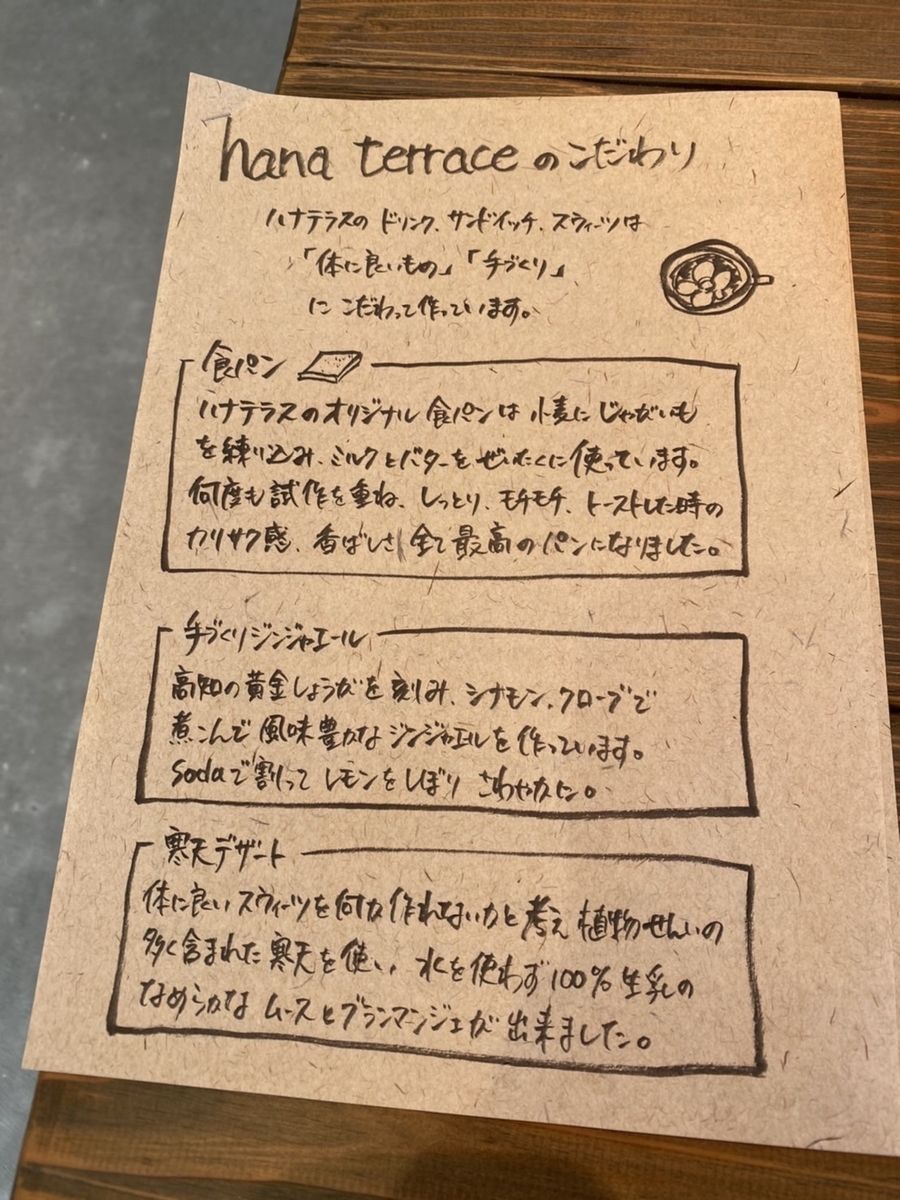 hana terrace のこだわり
ハナテラスの ドリンク、サンドイッチ、スウィーツは
「体に良いもの」「手づくり」
に こだわって作っています。
食パン
ハナテラスのオリジナル 食パンは 小麦に じゃがいも
を練り込み、ミルクとバターを ぜいたくに 使っています。
何度も 試作を重ね、しっとり、モチモチ、トーストした時の
カリサク感、香ばしさ 全て 最高の パンになりました。
手づくりジンジャエール
高知の黄金しょうがを 刻み、シナモン、クローブで
煮こんで 風味豊かな ジンジャエルを 作っています。
Sodaで割って レモンをしぼり さわやかに。
寒天デザート
体に良い スウィーツを 何か 作れないかと 考え 植物せんいの
多く含まれた 寒天を使い、水を使わず 100% 生乳の
なめらかな ムースとブランマンジェが 出来ました。